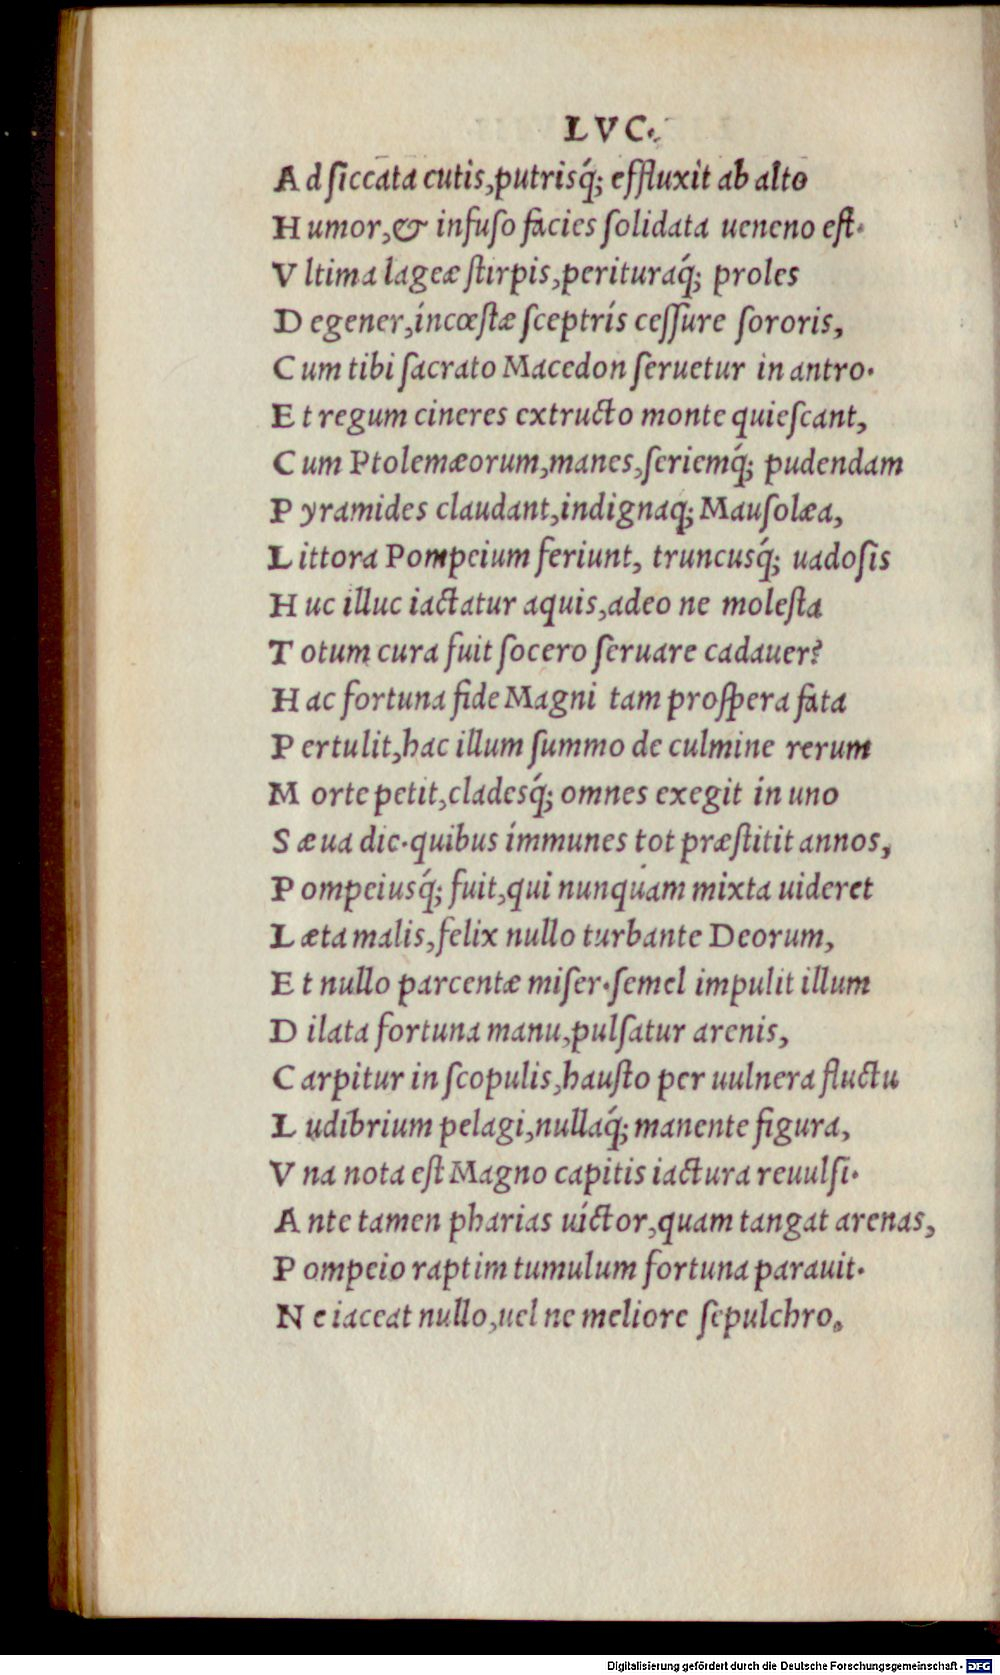 LVC.
A d ſiccata cutis, putrisq́; effluxit ab alto
H umor, & infuſo facies ſolidata ueneno eſt.
V ltima lageæ ſtirpis, perituraq́; proles
D egener, incœſtæ ſceptris ceſſure ſororis,
C um tibi ſacrato Macedon ſeruetur in antro.
E t regum cineres extructo monte quieſcant,
C um Ptolemæorum, manes, ſeriemq́; pudendam
P yramides claudant, indignaq; Mauſolæa,
L ittora Pompeium feriunt, truncusq́; uadoſis
H uc illuc iactatur aquis, adeo ne moleſta
T otum cura fuit ſocero ſeruare cadauer?
H ac fortuna fide Magni tam proſpera fata
P ertulit, hac illum ſummo de culmine rerum
M orte petit, cladesq́; omnes exegit in uno
S æua die. quibus immunes tot præſtitit annos,
P ompeiusq́; fuit, qui nunquam mixta uideret
L æta malis, felix nullo turbante Deorum,
E t nullo parcentæ miſer. ſemel impulit illum
D ilata fortuna manu, pulſatur arenis,
C arpitur in ſcopulis, hauſto per uulnera fluctu
L udibrium pelagi, nullaq́; manente figura,
V na nota eſt Magno capitis iactura reuulſi.
A nte tamen pharias uictor, quam tangat arenas,
P ompeio raptim tumulum fortuna parauit.
N e iaceat nullo, uel ne meliore ſepulchro.
Digitalisierung gefördert durch die Deutsche Forschungsgemeinschaft - DFG